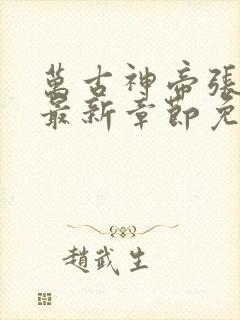 萬古神帝張
最新章節免
趙武生